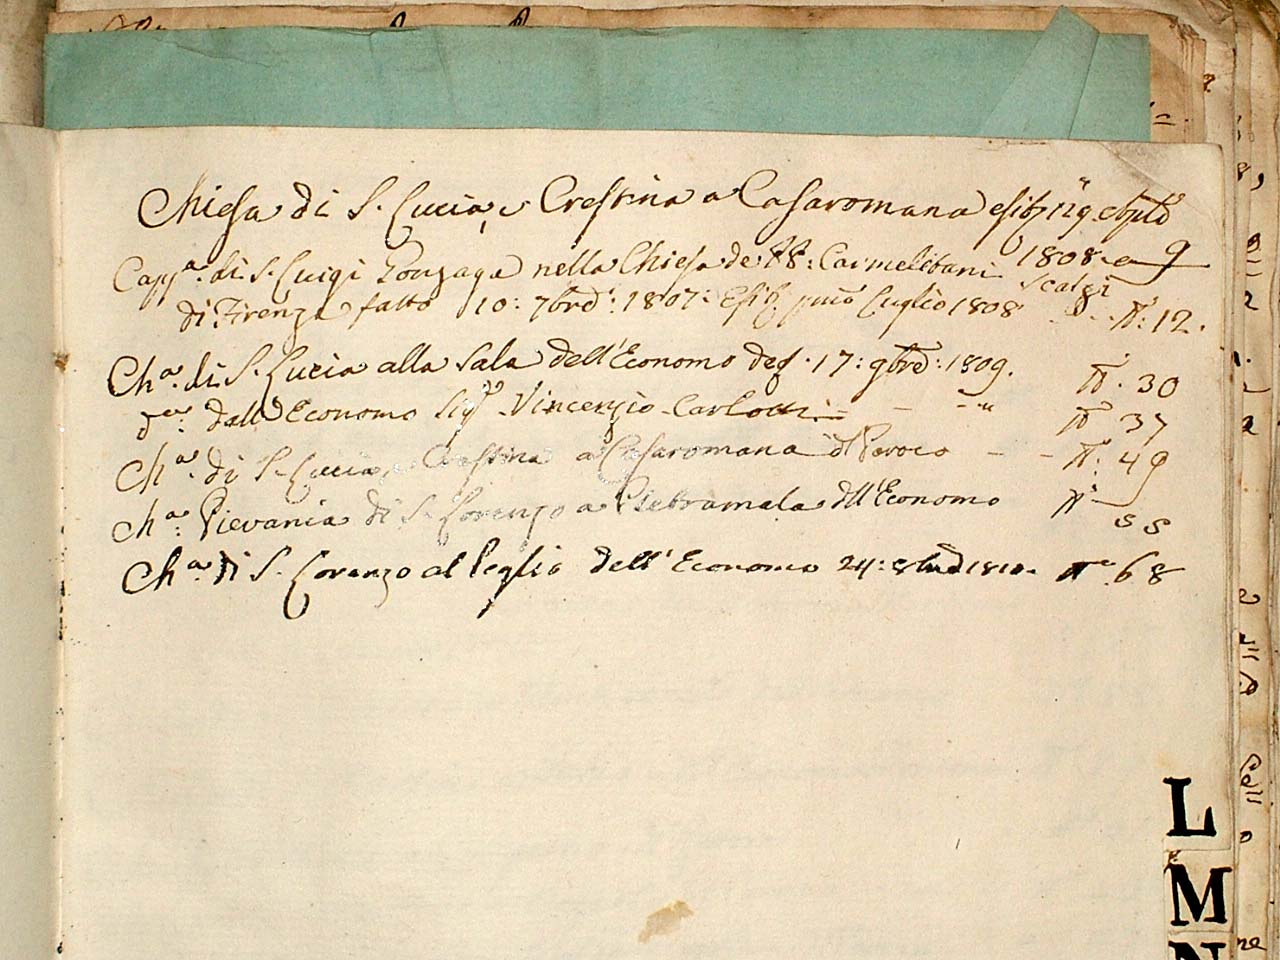 Chiesa di S. Lucia, e Crestina a Casaromana esib. 
1808 a 9
Capp.a di S. Luigi Gonzaga nella Chiesa de RR: Carmelitani Scalzi
di Firenze fatto 10: 7bre: 1807: Esib. pmo Luglio 1808 - - N: 12.
Ch.a di S. Lucia alla Sala dell'Economo def. 17: 9bre: 1809. N. 30
d.a: dall'Economo Sigr Vincenzio Carlotti - - - N 37
Ch.a di S. Lucia, e Crestina a Casaromana Paroco - - N: 49
Ch.a: Pievania di S. Lorenzo a Pietramala dll'Economo N 55
Ch.a di S. Lorenzo al Peglio dell'Economo 24: 1810. N. 68
L
M
N